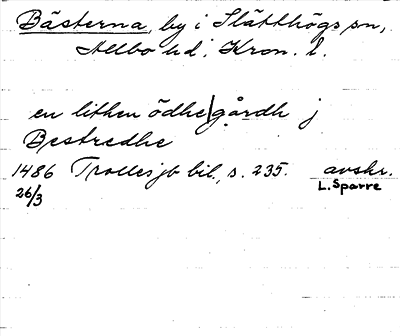 Bästerna, by i Slätthögs sn,
Allbo hd, Kron. l.
en lithen ödhe|gårdh j
Bestredhe
1486 Trolles jb bil., s. 235. avskr.
26/3 L. Sparre